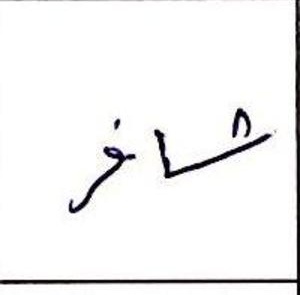 شاغر